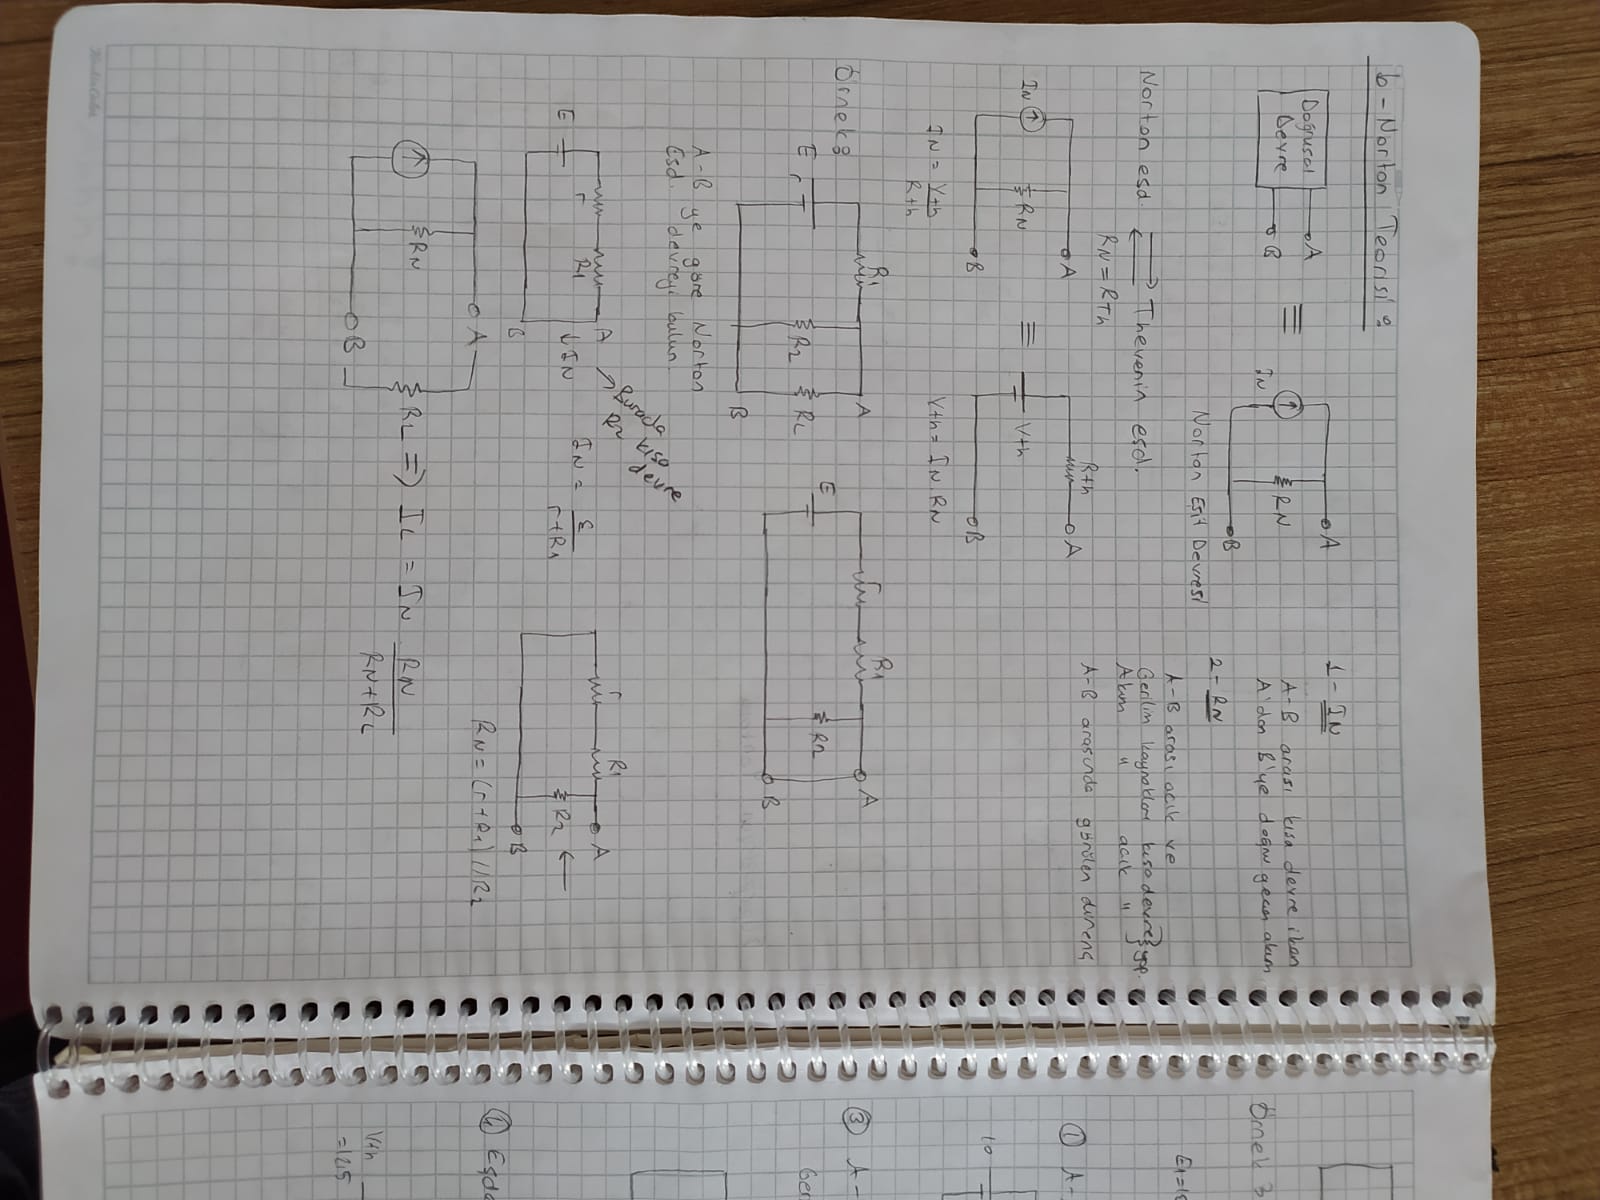 b - Norton Teorisi :
Doğrusal
Devre
A
B
≡
IN
RN
A
B
Norton Eşit Devresi
1 - IN
A-B arası kısa devre iken
A'dan B'ye doğru geçen akım
2 - RN
A-B arası açık ve
Gerilim kaynakları kısa devre } yap.
Akım " açık "
A-B arasında görülen direnç
Norton eşd. ⇄ Thevenin eşd.
RN = RTh
IN
RN
A
B
≡
Rth
A
Vth
B
IN = Vth / Rth
Vth = IN . RN
Örnek:
E
r
R1
R2
RL
A
B
E
r
R1
R2
A
B
A-B ye göre Norton
Eşd. devreyi bulun.
E
r
R1
A
↓ IN
B
→ Burada
R2 kısa
devre
IN = E / r+R1
r
R1
A
R2 ←
B
RN = (r+R1) // R2
RN
A
B
RL ⇒ IL = IN RN / RN+RL
Örnek 3
E1=18
① A-
10
③ A-
Ger
④ Eşd
Vth
=12,5